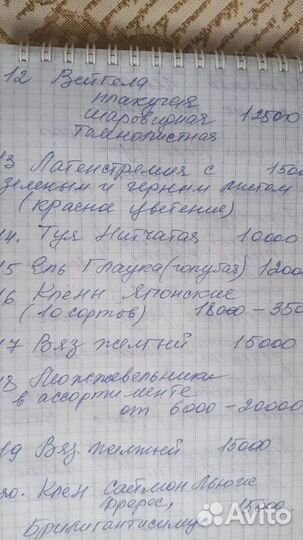 12 Вейгела
плакучая
шаровидная 12500
тёмнолистная
13 Лагенстремия с 1500
зеленым и чёрным листом
(красное цветение)
14. Туя Нитчатая 10000
15 Ель Глаука (голубая) 1200
16 Клены Японские
(10 сортов) 18000 - 350
17 Вяз желтый 15000
18 Можжевельники
в ассортименте
от 6000 - 20000
19 Вяз. желтый 15000
20. Клен Саймон Льюис
Брилиантисимум
Avito